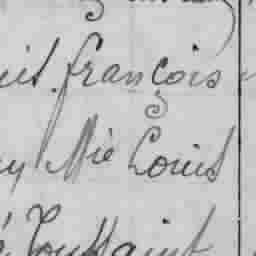 françois
Mie Louis
Toussaint